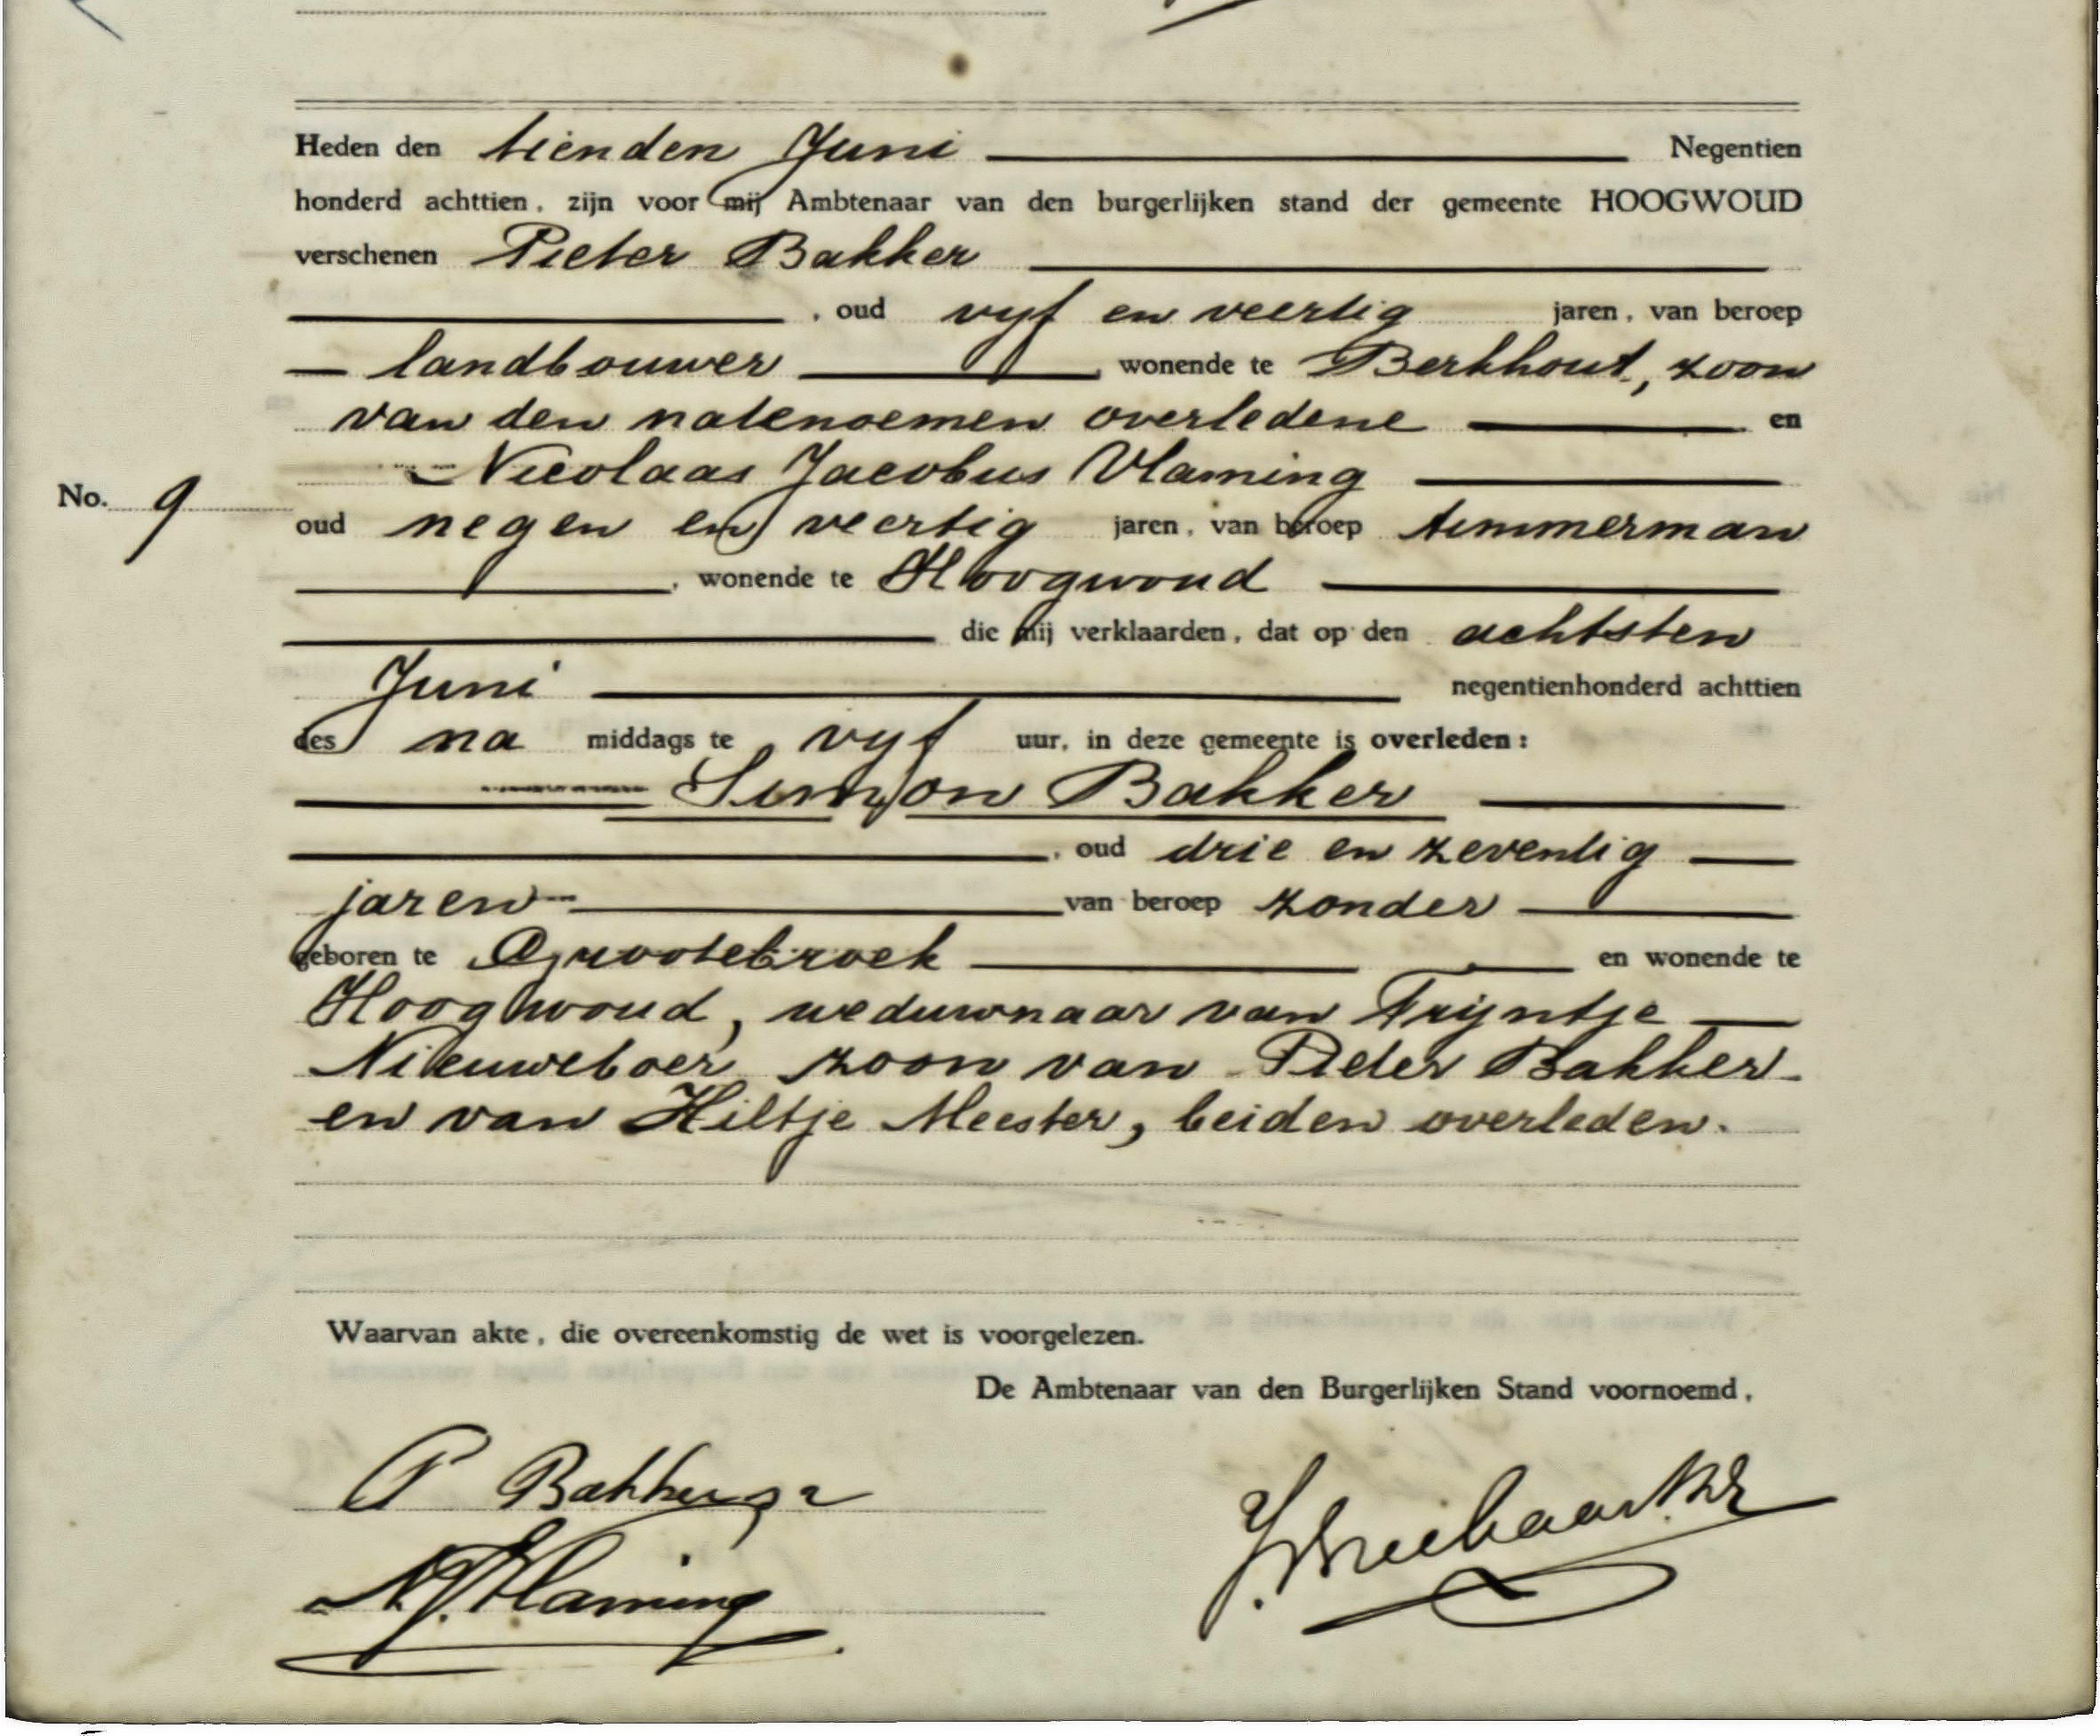 Heden den tienden Juni Negentien
honderd achttien, zijn voor mij Ambtenaar van den burgerlijken stand der gemeente HOOGWOUD
verschenen Pieter Bakker
, oud vyf en veertig jaren, van beroep
landbouwer, wonende te Berkhout, zoon
van den natenoemen overledene en
Nicolaas Jacobus Vlaming
No. 9
oud negen en veertig jaren, van beroep timmerman
, wonende te Hoogwoud
die mij verklaarden, dat op den achtsten
Juni negentienhonderd achttien
des na middags te vyf uur, in deze gemeente is overleden:
Simon Bakker
, oud drie en zeventig
jaren van beroep zonder
geboren te Grootebroek en wonende te
Hoogwoud, weduwnaar van Trijntje
Nieuweboer zoon van Pieter Bakker
en van Hiltje Meester, beiden overleden.
Waarvan akte, die overeenkomstig de wet is voorgelezen.
De Ambtenaar van den Burgerlijken Stand voornoemd,
P Bakker
N.J. Vlaming